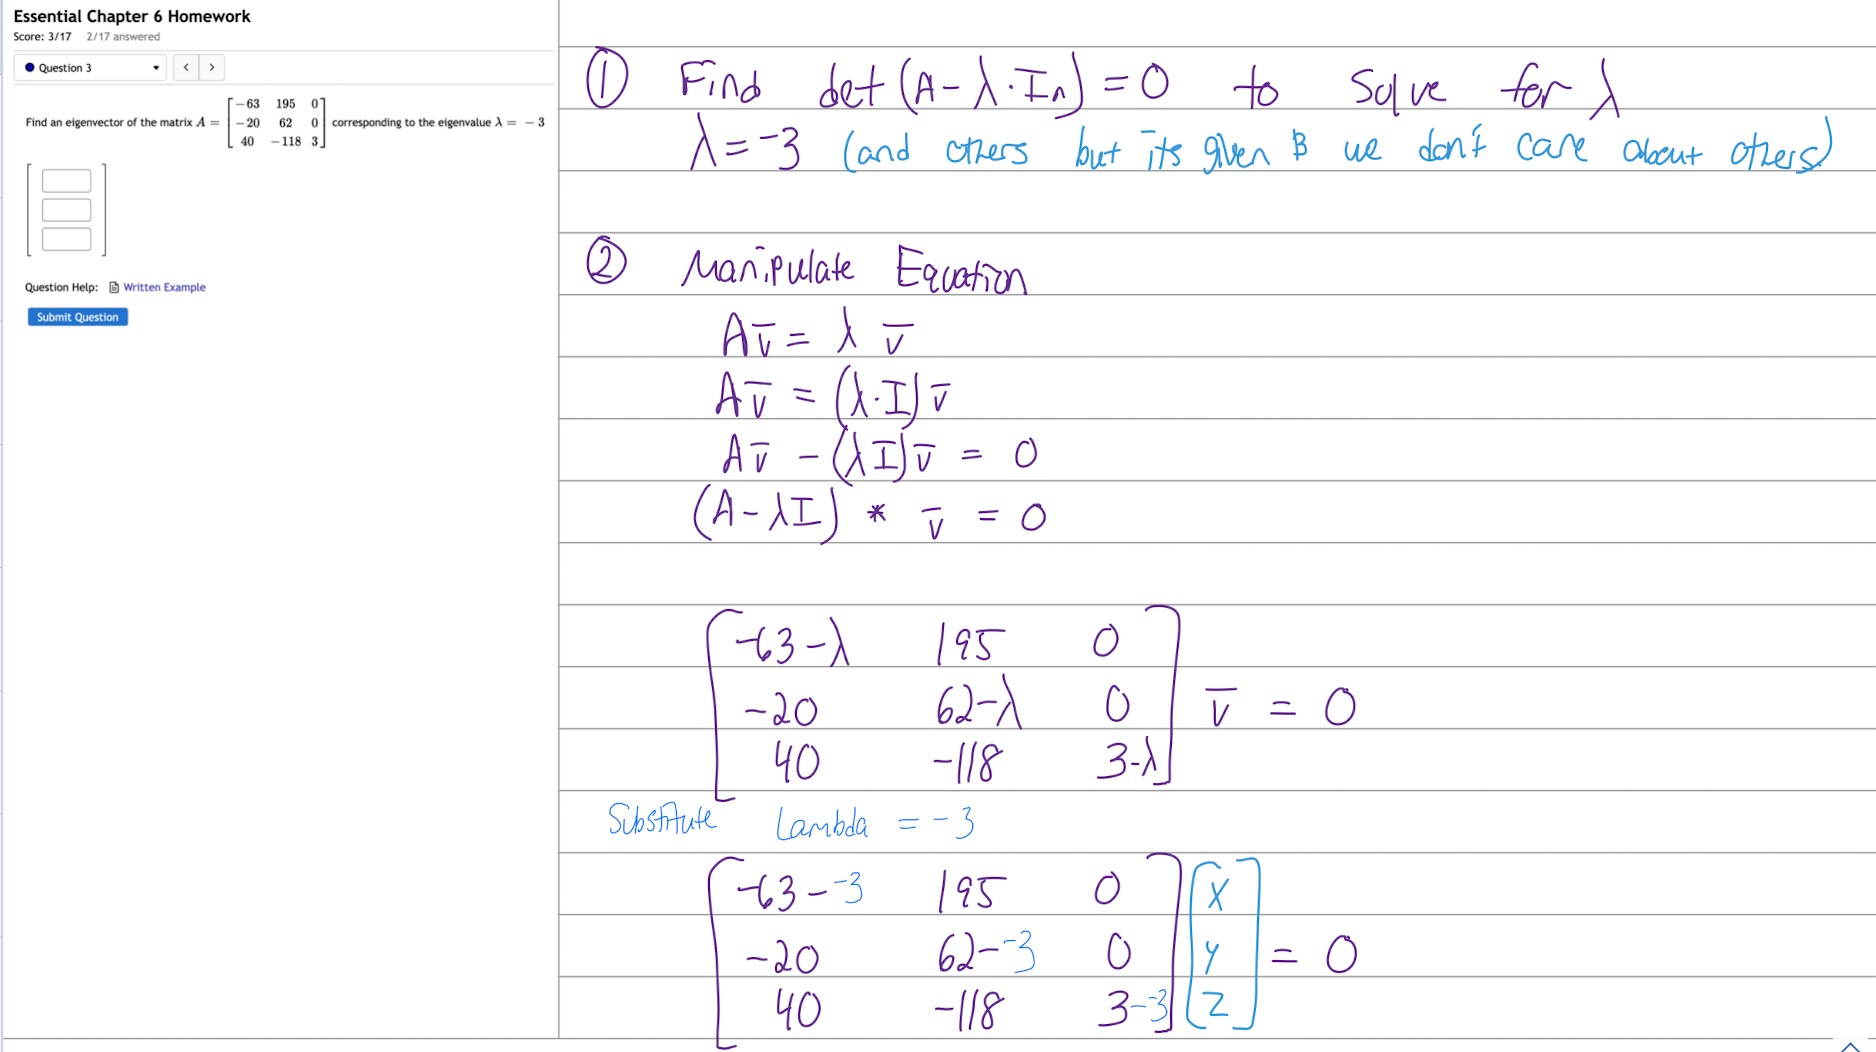 Essential Chapter 6 Homework
Score: 3/17 2/17 answered
Question 3
< >
Find an eigenvector of the matrix A = [-63 195 0
-20 62 0
40 -118 3] corresponding to the eigenvalue λ = -3
Question Help: Written Example
Submit Question
① Find det(A-λ·In)=0 to solve for λ
λ=-3 (and others but its given & we don't care about others)
② Manipulate Equation
Av̄ = λ v̄
Av̄ = (λ·I)v̄
Av̄ - (λI)v̄ = 0
(A-λI) * v̄ = 0
[-63-λ 195 0
-20 62-λ 0
40 -118 3-λ] v̄ = 0
Substitute Lambda = -3
[-63--3 195 0
-20 62--3 0
40 -118 3--3] [x y z] = 0